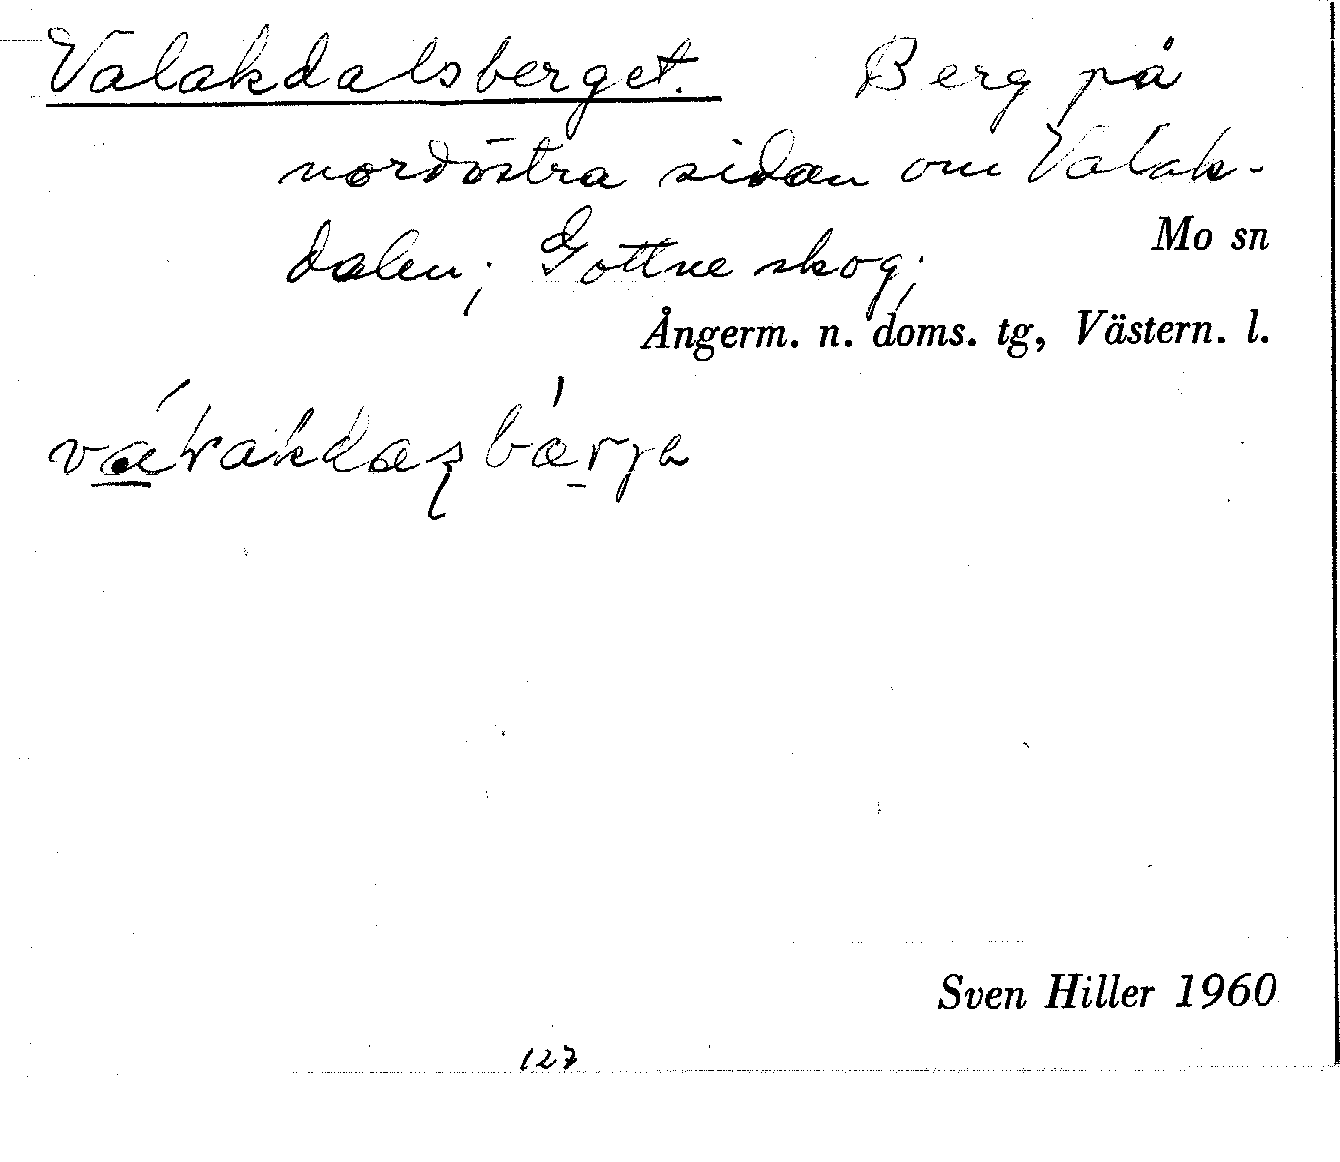 Valakdalsberget. Berg på
nordöstra sidan om Valak-
dalen; Gottne skog;
Mo sn
Ångerm. n. doms. tg, Västern. l.
Sven Hiller 1960
127